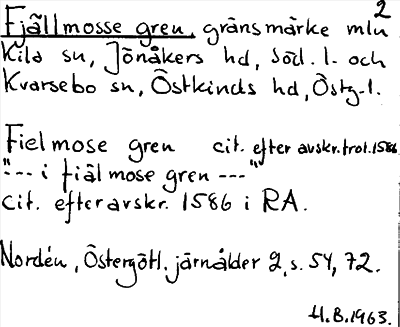 2
Fjällmosse gren, gränsmärke mln
Kila sn, Jönåkers hd, Söd. l. och
Kvarsebo sn, Östkinds hd, Östg. l.
Fielmose gren cit. efter avskr. trol. 1586
"--- i fiälmose gren ---"
cit. efter avskr. 1586 i RA.
Nordén, Östergötl. järnålder 2, s. 54, 72.
H.B. 1963.